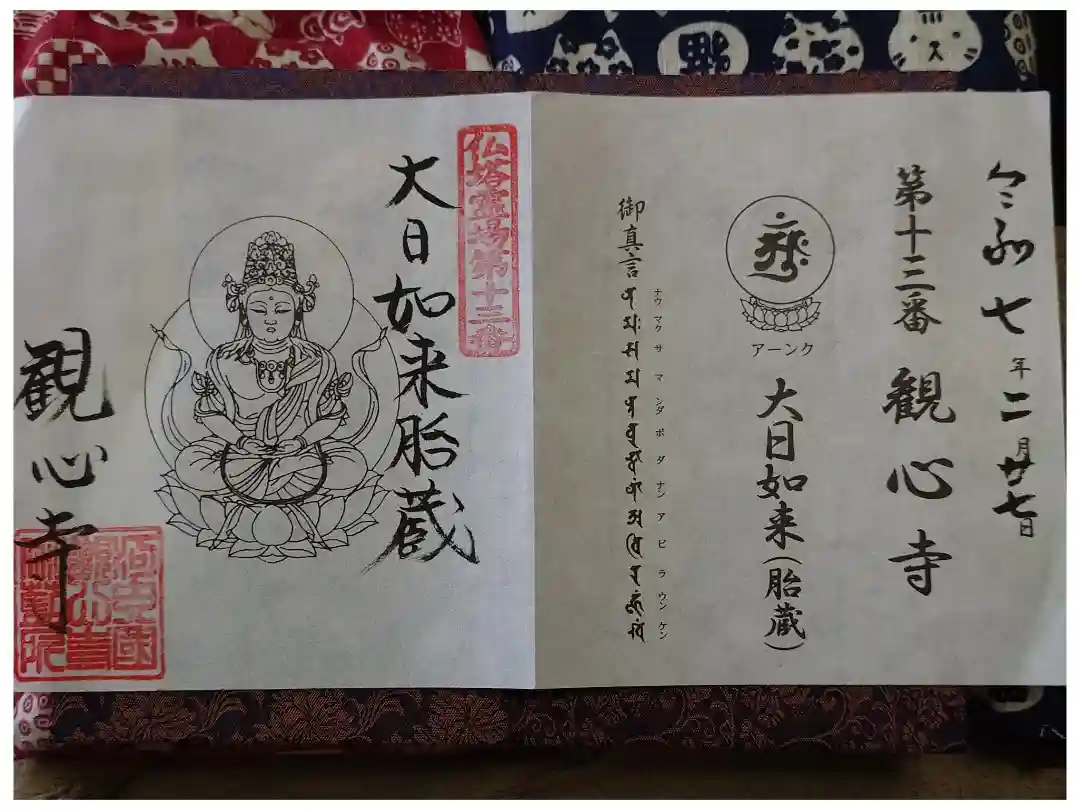 令和七年二月廿七日
第十三番 観心寺
アーンク
大日如来(胎蔵)
御真言
ナウ マク サ マ ンダ ボ ダ ナン ア ビ ラ ウン ケン
仏塔霊場第十三番
大日如来胎蔵
観心寺